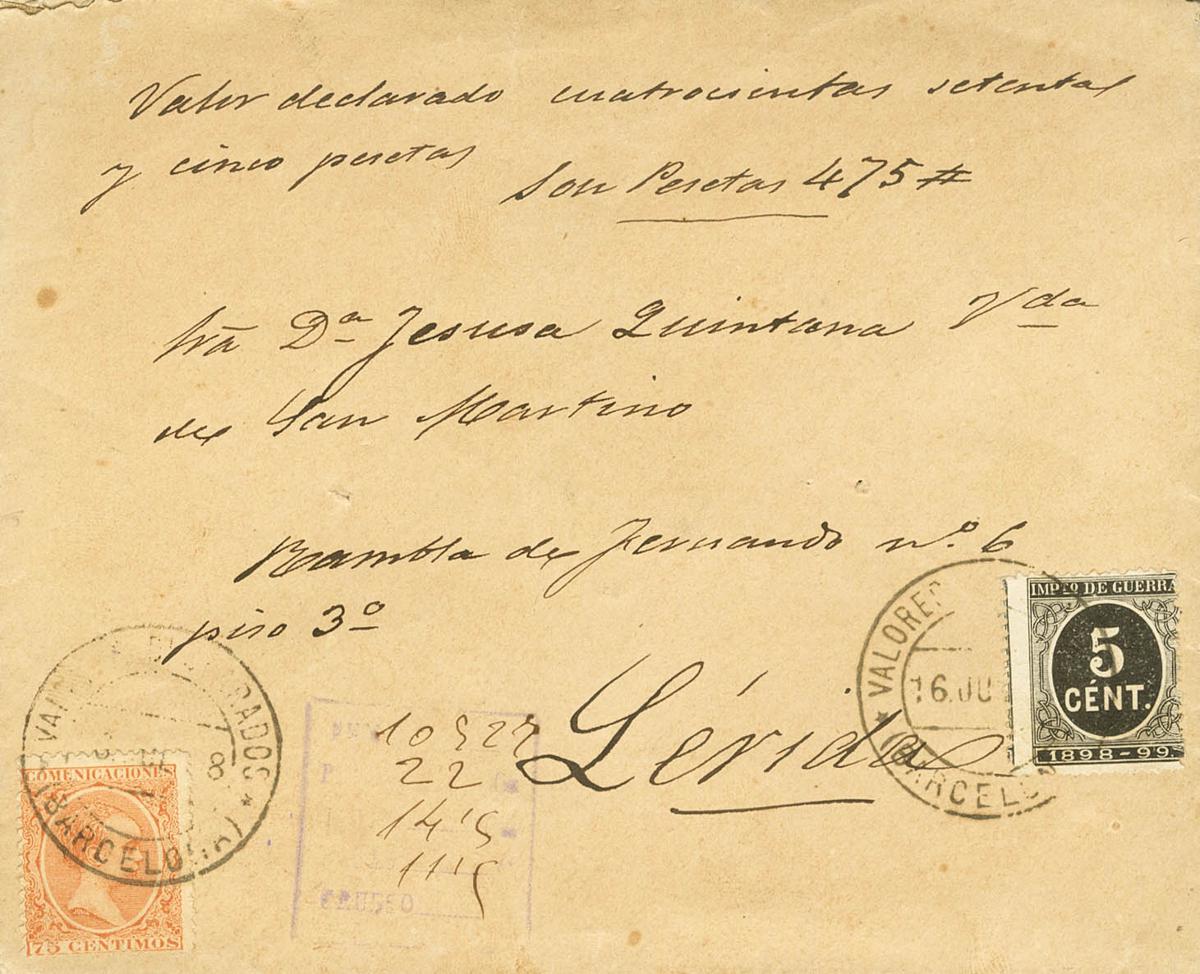 Valor declarado cuatrocientas setenta
y cinco pesetas
Son Pesetas 475#
Sra Dª Jesusa Quintana Vda
de San Martino
Rambla de Fernando nº. 6
piso 3º
Lérida
VALORES
16.JU
(BARCELO
IMPTO DE GUERRA
5
CÉNT.
1898-99
DECLARADOS
8
(BARCELONA)
COMENICACIONES
75 CENTIMOS
22
14'5
11'5
GRUESO